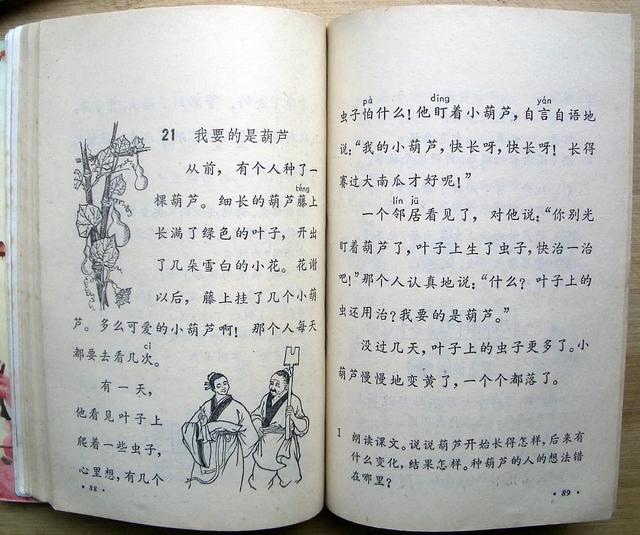 21 我要的是葫芦
从前，有个人种了一
téng
棵葫芦。细长的葫芦藤上
长满了绿色的叶子，开出
了几朵雪白的小花。花谢
以后，藤上挂了几个小葫
芦。多么可爱的小葫芦啊！那个人每天
cì
都要去看几次。
有一天，
他看见叶子上
爬着一些虫子，
心里想，有几个
· 88 ·
pà dīng yán
虫子怕什么！他盯着小葫芦，自言自语地
说：“我的小葫芦，快长呀，快长呀！长得
赛过大南瓜才好呢！”
lín jū
一个邻居看见了，对他说：“你别光
盯着葫芦了，叶子上生了虫子，快治一治
吧！”那个人认真地说：“什么？叶子上的
虫还用治？我要的是葫芦。”
没过几天，叶子上的虫子更多了。小
葫芦慢慢地变黄了，一个个都落了。
1 朗读课文。说说葫芦开始长得怎样，后来有
什么变化，结果怎样。种葫芦的人的想法错
在哪里？
· 89 ·